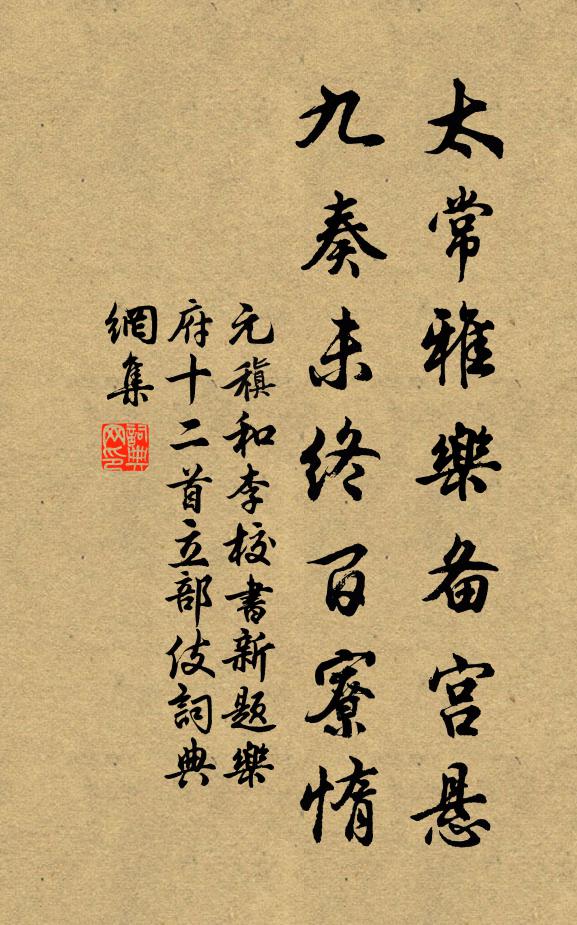 太常雅樂备宫悬
九奏未终百寮惰
元稹和李校書新题樂
府十二首立部伎詞典
網集
詞典
网印